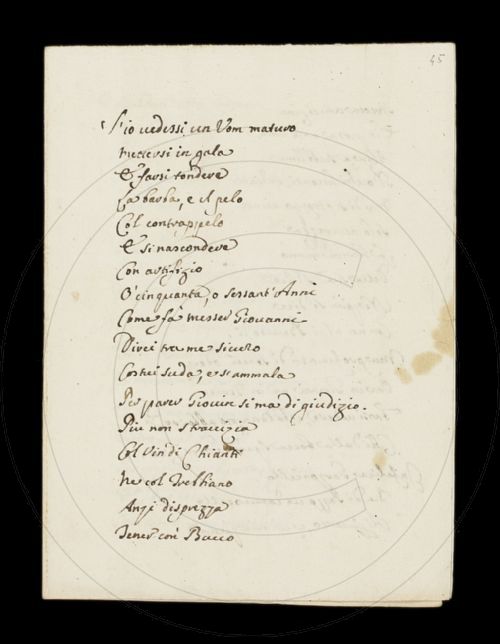 45
S'io vedessi un Uom maturo
Mettersi in gala
E farsi tondere
La barba, e il pelo
Col contrappelo
E si nascondere
Con artifizio
O' cinquanta, o sessant'Anni
Come fà messer Giovanni
Direi tra me sicuro
Costui suda, e s'ammala
Per parer Giovin si ma di giudizio.
Più non stravizia
Col Vin di Chianti
Ne col Trebbiano
Anzi disprezza
Tener con Bacco